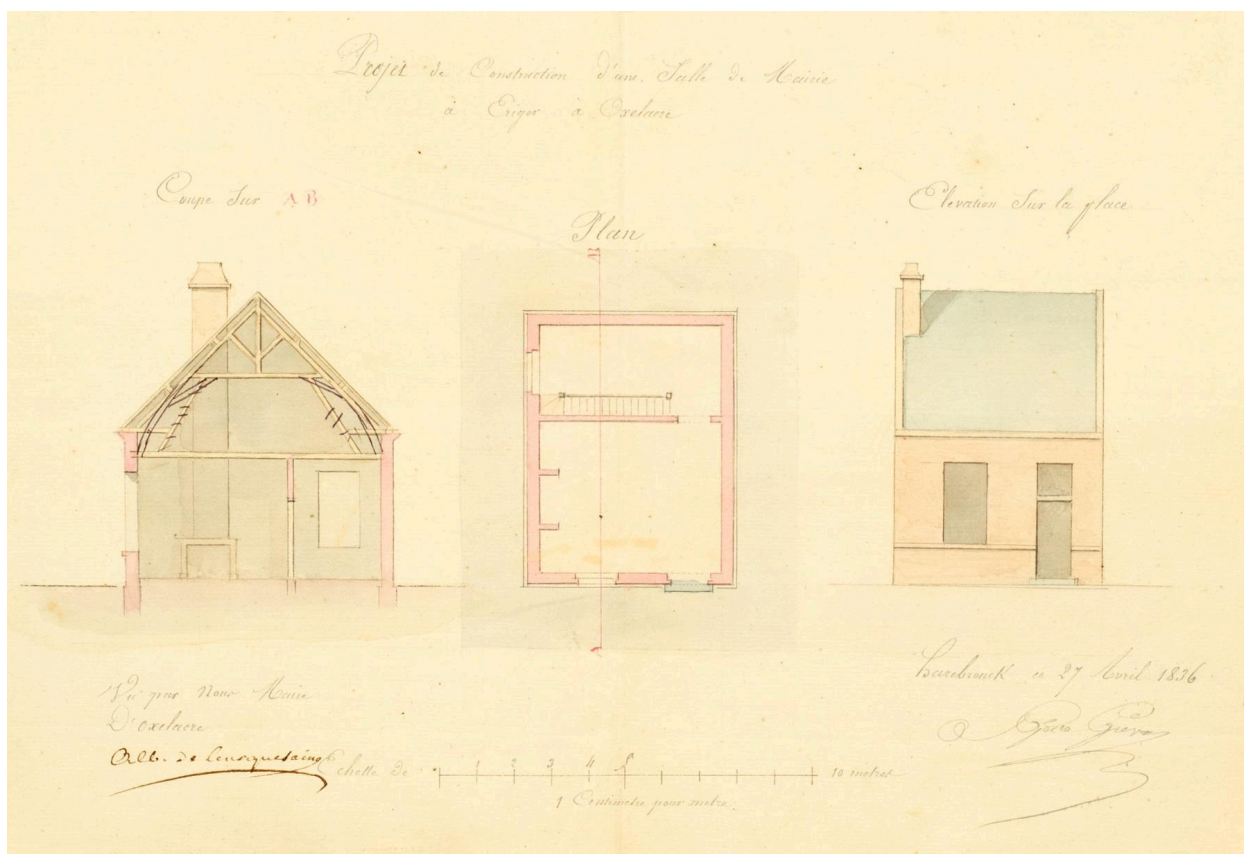 Projet de Construction d'une Salle de Mairie
à Eriger à Oxelaere
Coupe Sur A B
Plan
B
A
Elévation Sur la place
Vu par Nous Maire
D'oxelaere
Alb. de
hazebrouck ce 27 Avril 1836
Echelle de 1 2 3 4 5 10 metres
1 Centimetre pour metre.